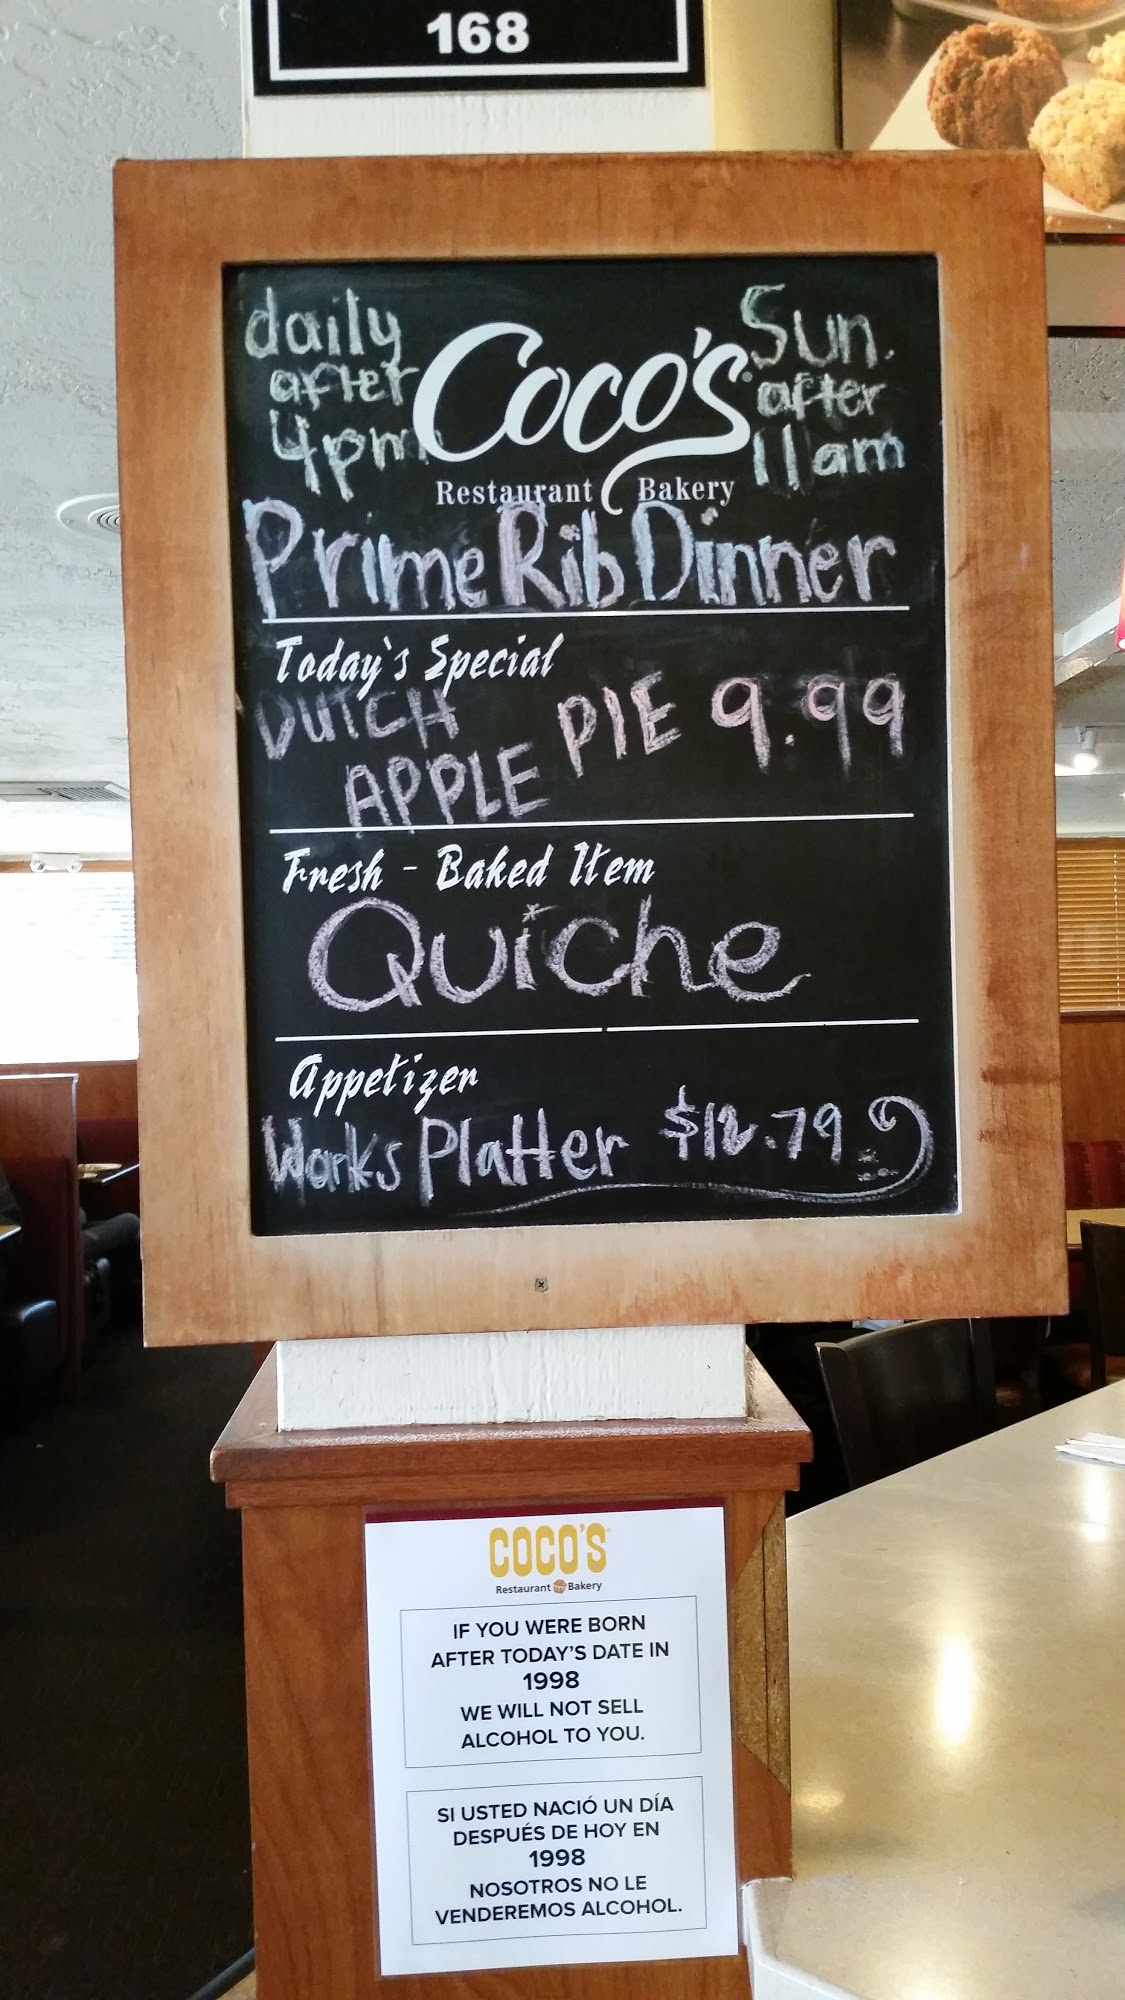 168
daily
after
4pm
Coco's
Restaurant Bakery
Sun.
after
11am
Prime Rib Dinner
Today's Special
DUTCH
APPLE PIE 9.99
Fresh - Baked Item
Quiche
Appetizer
Works Platter $12.79
COCO'S
Restaurant Bakery
IF YOU WERE BORN
AFTER TODAY'S DATE IN
1998
WE WILL NOT SELL
ALCOHOL TO YOU.
SI USTED NACIÓ UN DÍA
DESPUÉS DE HOY EN
1998
NOSOTROS NO LE
VENDEREMOS ALCOHOL.